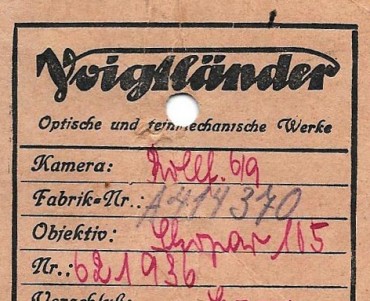 Voigtländer
Optische und feinmechanische Werke
Kamera: Rollf. 6/9
Fabrik=Nr.: A 414 370
Objektiv: Skopar 105
Nr.: 621936